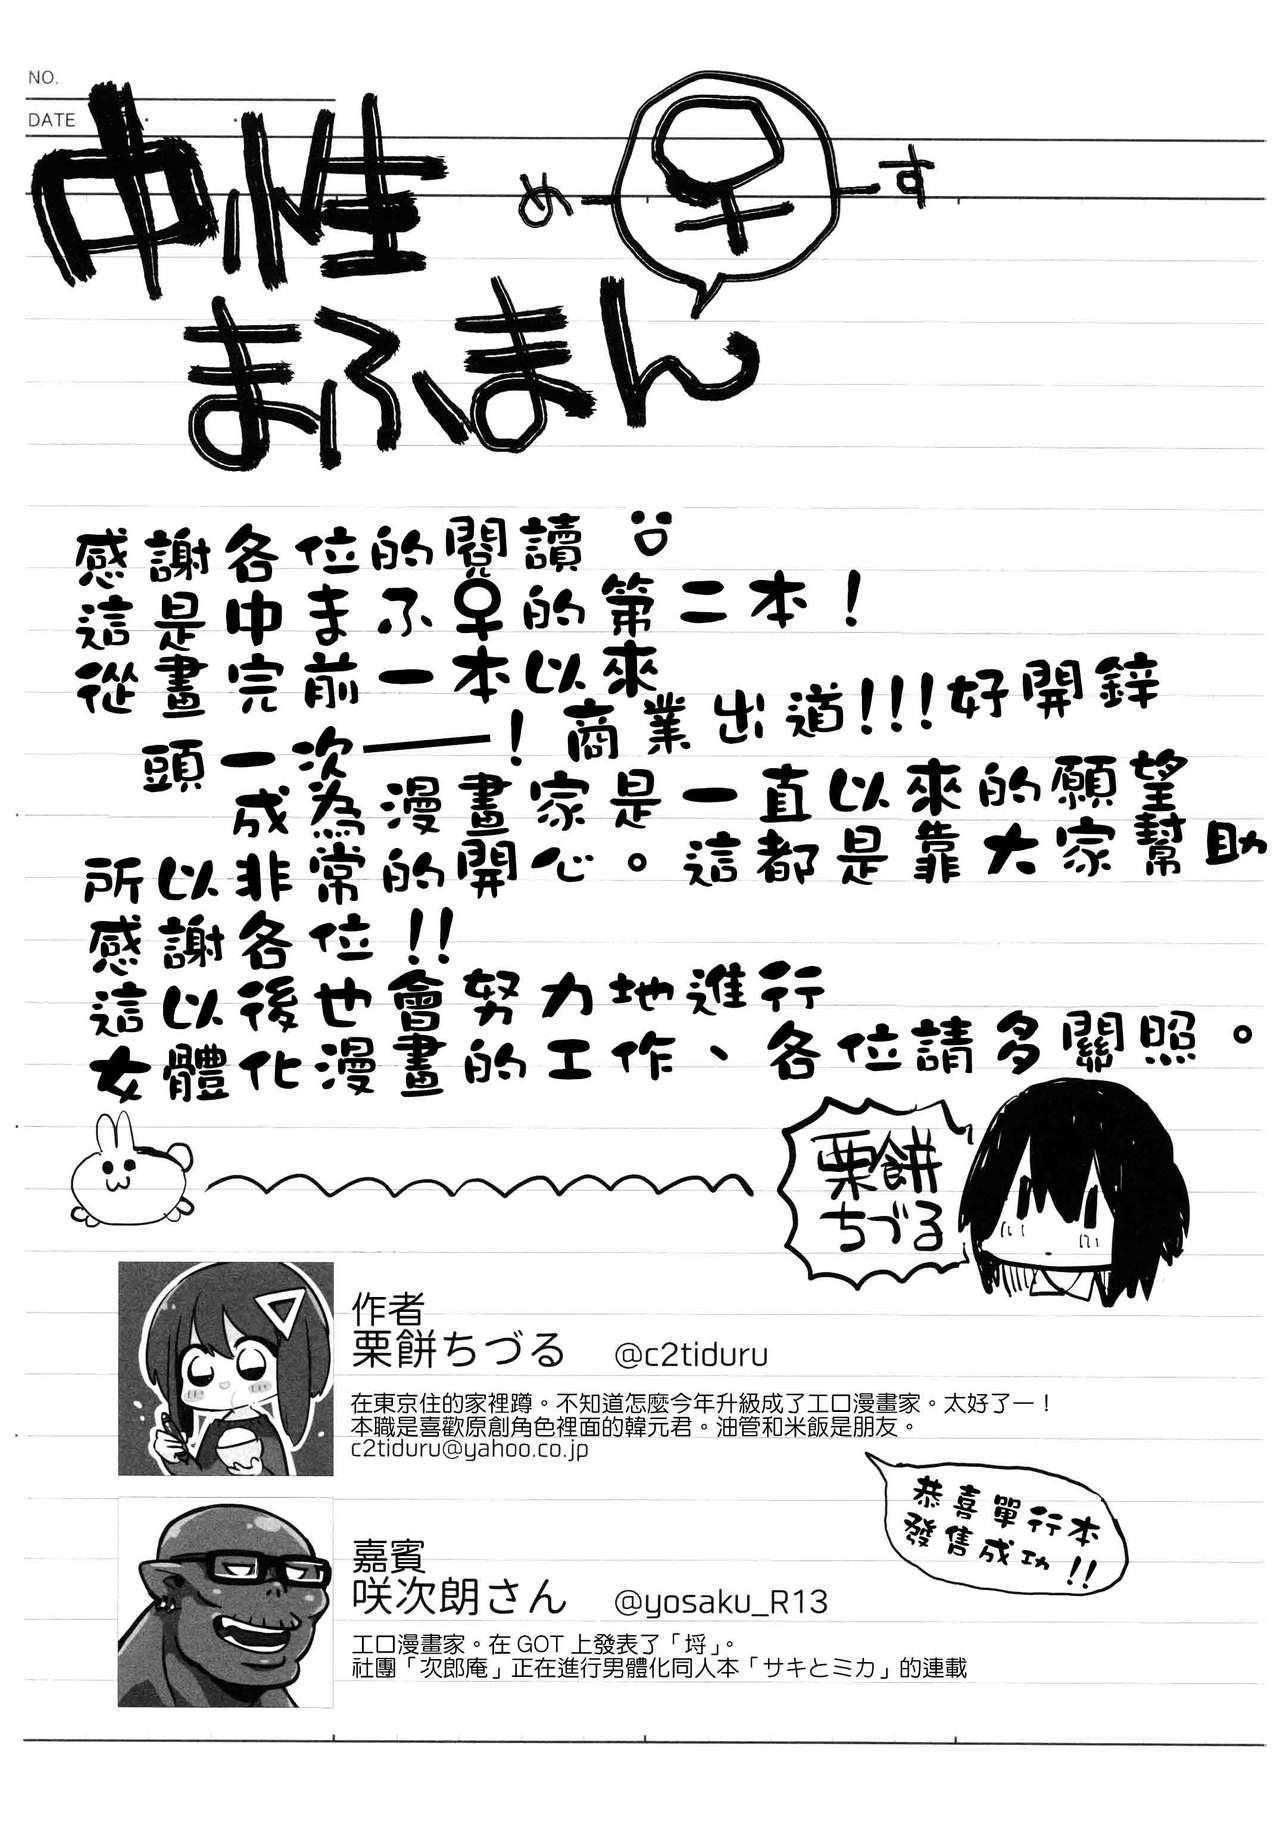 NO.
DATE
中性
め♀す
まふまん
感謝各位的閱讀
這是中まふ♀的第二本！
從畫完前一本以來
頭一次——！商業出道!!!好開鋅
成為漫畫家是一直以來的願望
所以非常的開心。這都是靠大家幫助
感謝各位!!
這以後也會努力地進行
女體化漫畫的工作、各位請多關照。
栗餅
ちづる
作者
栗餅ちづる @c2tiduru
在東京住的家裡蹲。不知道怎麼今年升級成了エロ漫畫家。太好了ー！
本職是喜歡原創角色裡面的韓元君。油管和米飯是朋友。
c2tiduru@yahoo.co.jp
恭喜單行本
發售成功!!
嘉賓
咲次朗さん @yosaku_R13
エロ漫畫家。在 GOT 上發表了「埒」。
社團「次郎庵」正在進行男體化同人本「サキとミカ」的連載